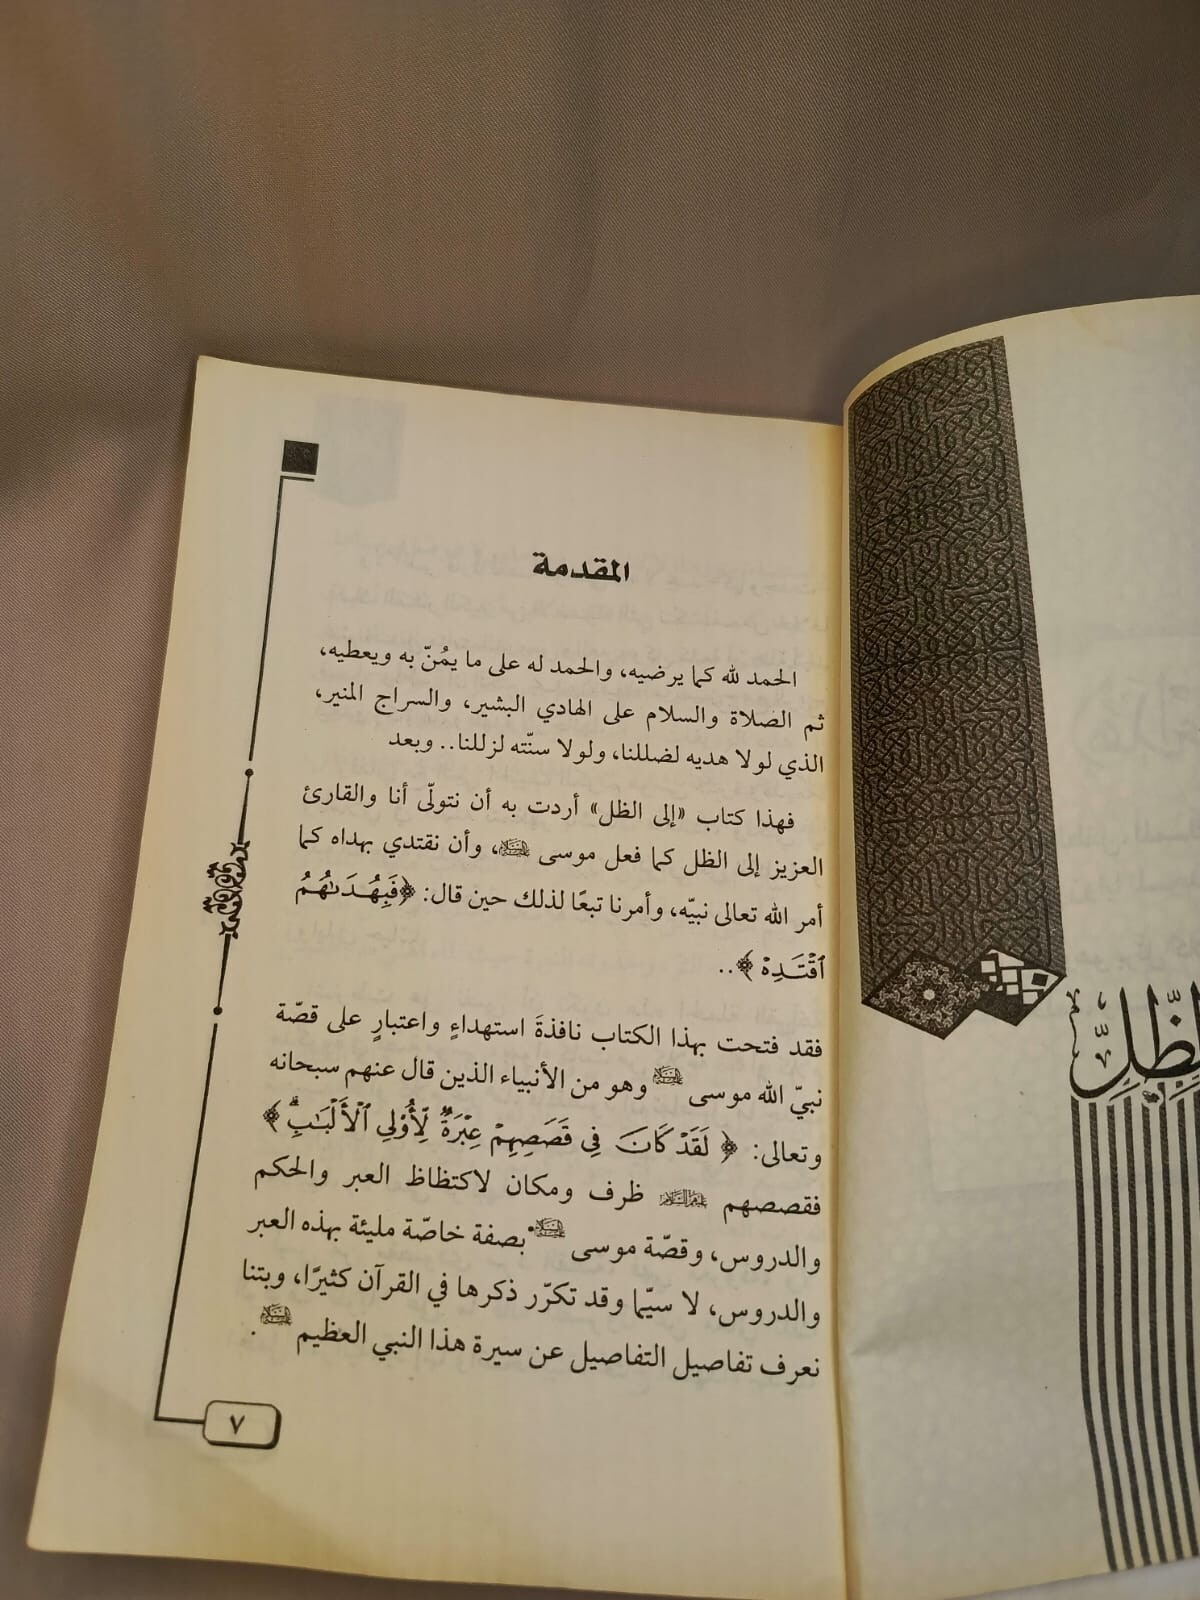 المقدمة
الحمد لله كما يرضيه، والحمد له على ما يمُنّ به ويعطيه،
ثم الصلاة والسلام على الهادي البشير، والسراج المنير،
الذي لولا هديه لضللنا، ولولا سنّته لزللنا.. وبعد
فهذا كتاب «إلى الظل» أردت به أن نتولّى أنا والقارئ
العزيز إلى الظل كما فعل موسى عليه السلام، وأن نقتدي بهداه كما
أمر الله تعالى نبيّه، وأمرنا تبعًا لذلك حين قال: ﴿فَبِهُدَىٰهُمُ
ٱقْتَدِهْ﴾..
فقد فتحت بهذا الكتاب نافذةَ استهداءٍ واعتبارٍ على قصّة
نبيّ الله موسى عليه السلام وهو من الأنبياء الذين قال عنهم سبحانه
وتعالى: ﴿لَقَدْ كَانَ فِي قَصَصِهِمْ عِبْرَةٌ لِّأُوْلِي ٱلْأَلْبَٰبِ ۗ﴾
فقصصهم عليهم السلام ظرف ومكان لاكتظاظ العبر والحكم
والدروس، وقصّة موسى عليه السلام بصفة خاصّة مليئة بهذه العبر
والدروس، لا سيّما وقد تكرّر ذكرها في القرآن كثيرًا، وبتنا
نعرف تفاصيل التفاصيل عن سيرة هذا النبي العظيم عليه السلام.
٧